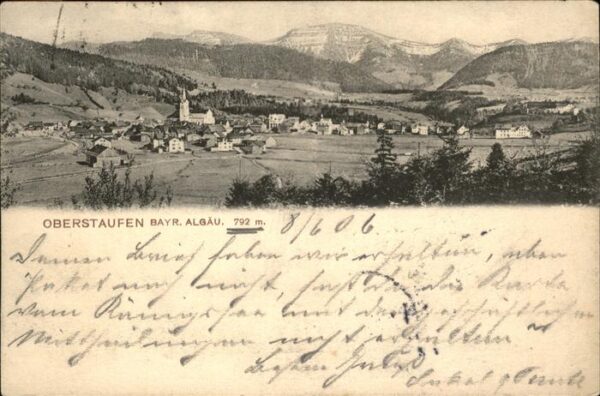 OBERSTAUFEN BAYR. ALGÄU. 792 m. 8/6 06
Deinen Brief haben wir erhalten, aber
Paket noch nicht, hast du die Karte
vom Königssee mit den geschäftlichen
Mittheilungen nicht erhalten
Besten Gruß
Onkel & Tante